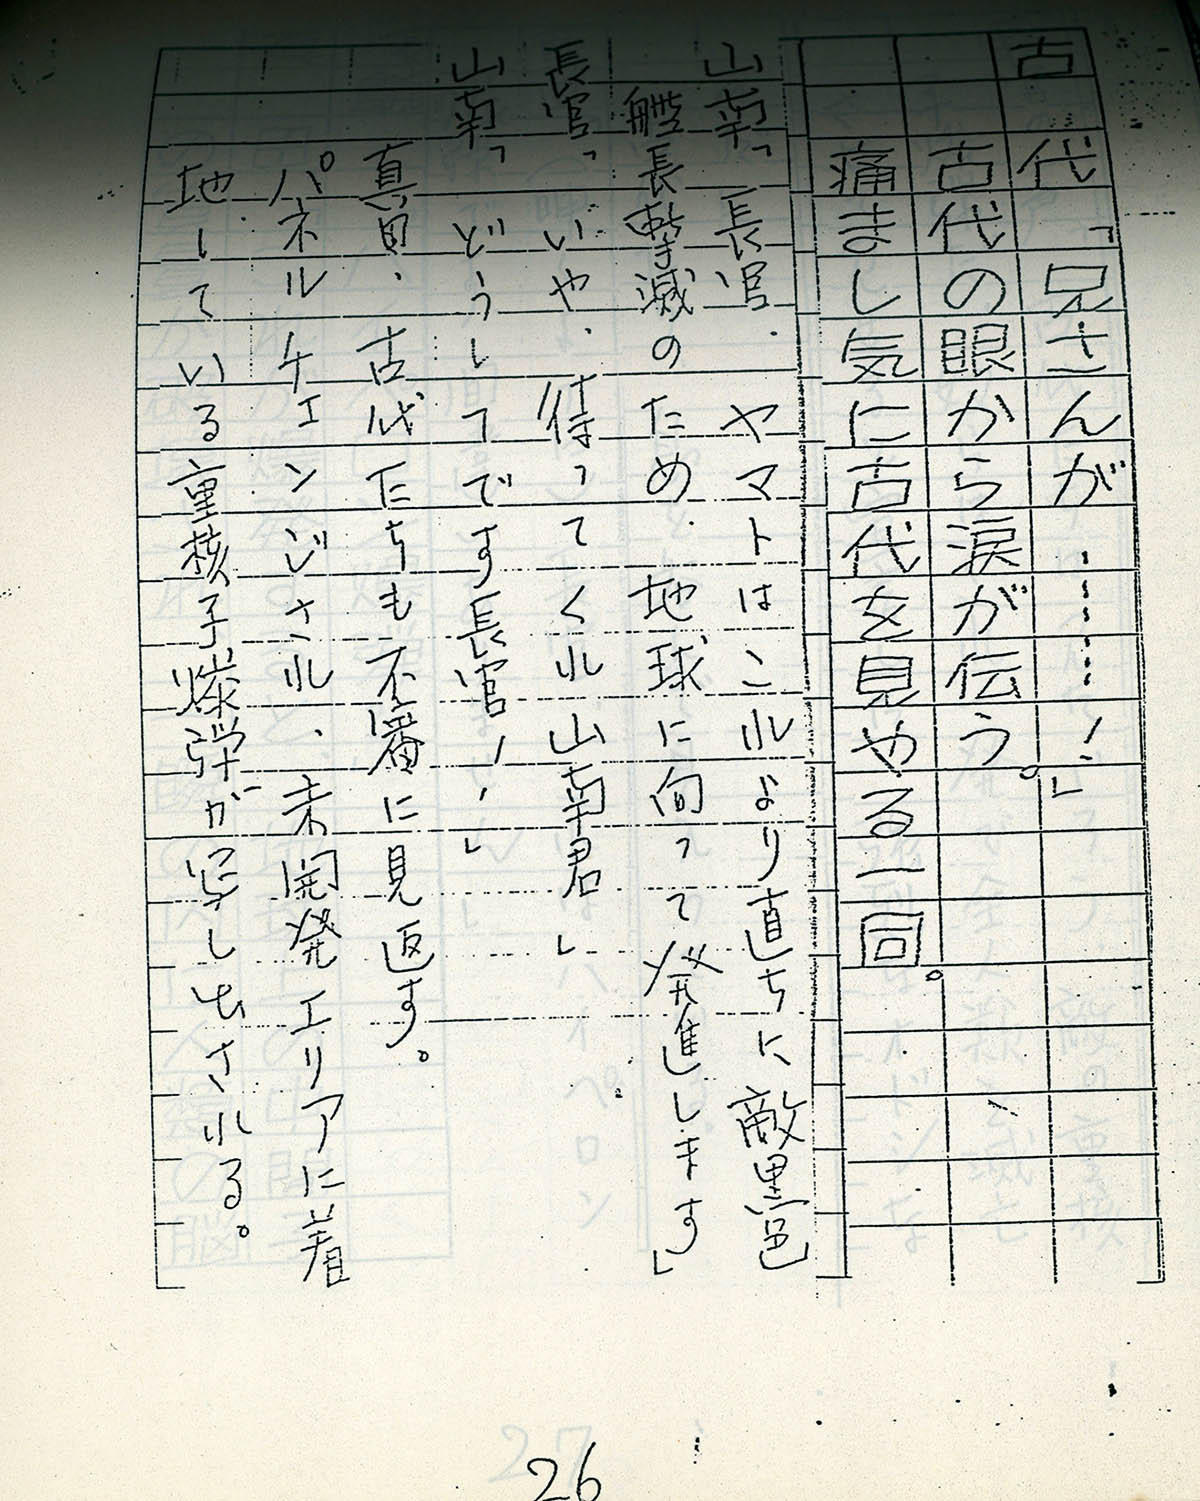 古代「兄さんが……！」
古代の眼から涙が伝う。
痛まし気に古代を見やる一同。
山南「長官、ヤマトはこれより直ちに敵黒色
艦長撃滅のため、地球に向って発進します」
長官「いや、待ってくれ山南君」
山南「どうしてです長官！」
真田、古代たちも不審に見返す。
パネルチェンジされ、未開発エリアに着
地している重核子爆弾が写し出される。
26